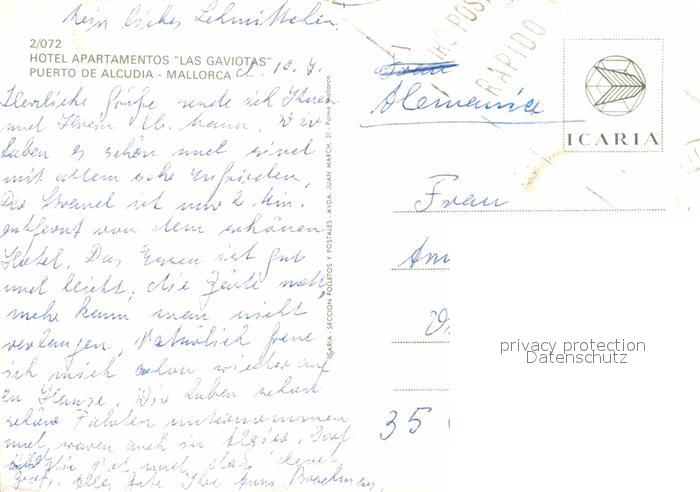 Mein liebes Lehmittchen.
2/072
HOTEL APARTAMENTOS "LAS GAVIOTAS"
PUERTO DE ALCUDIA - MALLORCA d. 10. 9.
Herzliche Grüße sende ich Ihnen
und Ihrem lb. Mann. Wir
haben es schön und sind
mit allem sehr zufrieden,
Der Strand ist nur 2 Min.
entfernt von dem schönen
Hotel. Das Essen ist gut
und leicht, die Gäste nett,
mehr kann man nicht
verlangen, Natürlich freue
ich mich schon wieder auf
zu Hause. Wir haben schon
schöne Fahrten unternommen
und waren auch in
und das
Alles Gute Ihre Anna
ICARIA - SECCION FOLLETOS Y POSTALES - AVDA. JUAN MARCH, 31 - Palma Mallorca
POST
RAPIDO
Frau
Alemania
ICARIA
Frau
Am
35
privacy protection
Datenschutz